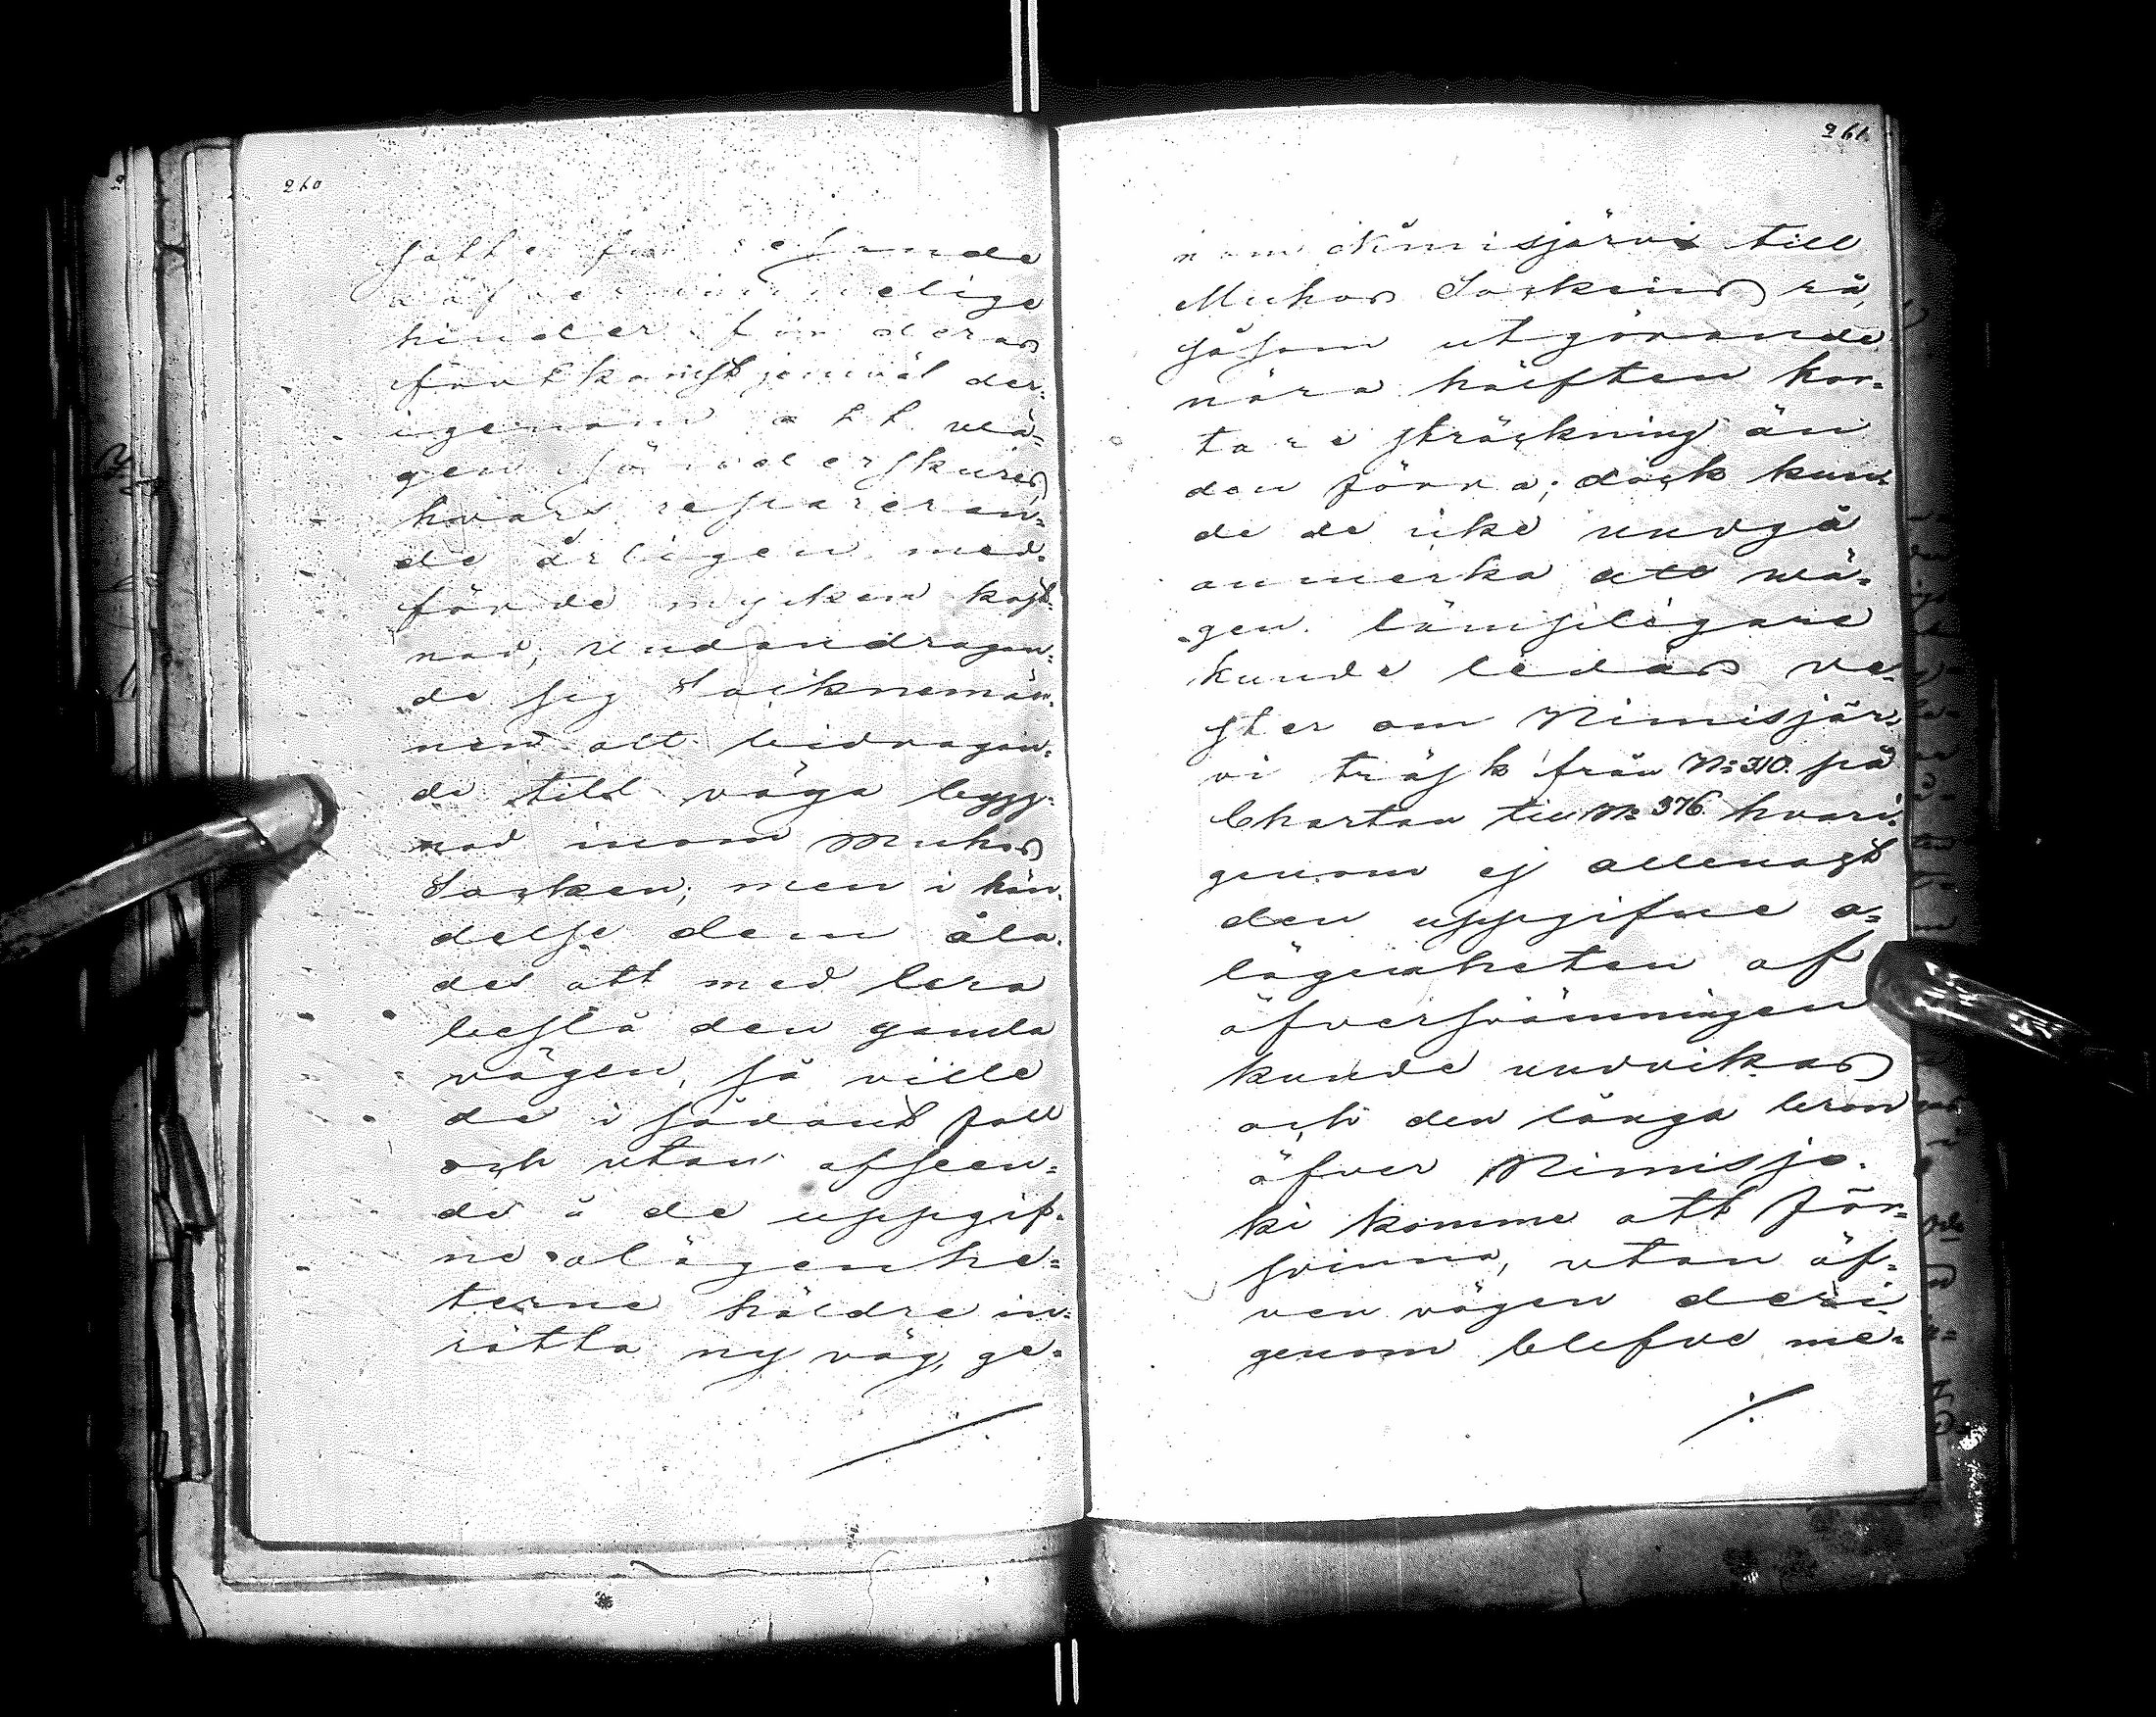 260
satte för resande
oöfvervinnelige
hinder för deras
fortkomst jemväl der-
igenom att vä-
gen sönderskures,
hvars repareran-
de årligen med-
förde mycken kost-
nad, undandragan-
de sig Socknemän-
nen all bidragan-
de till väga bygg-
nad inom Muhos
Socken; men i hän-
delse dem åla-
des att med lera
beslå den gamla
vägen, så ville
de i sådant fall
och utan afseen-
de å de uppgif-
ne olägenhe-
terne häldre in-
rätta ny väg, ge-
261
nom Nimisjärvi till
Muhos Sockens rå,
såsom utgörande
nära hälften kor-
tare sträckning än
den förra; dock kun-
de de icke undgå
anmerka att vä-
gen lämpeligare
kunde ledas ve-
ster om Nimisjär-
vi träsk från No 310. på
Chartan till No 376. hvari-
genom ej allenast
den uppgifne o-
lägenheten af
öfversvämningen
kunde undvikas
och den långa bron
öfver Nimisjo-
ki komme att för-
svinna, utan äf-
ven vägen deri-
genom blefve me-
./.